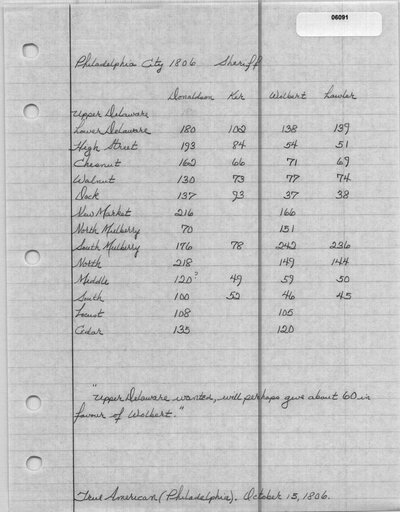 06091
Philadelphia City 1806 Sheriff
Donaldson Ker Wolbert Lawler
Upper Delaware
Lower Delaware 180 102 138 139
High Street 193 84 54 51
Chesnut 162 66 71 69
Walnut 130 73 77 74
Dock 137 93 37 38
New Market 216 166
North Mulberry 70 151
South Mulberry 176 78 242 236
North 218 149 144
Middle 120? 49 59 50
South 100 52 46 45
Locust 108 105
Cedar 135 120
"Upper Delaware wanted, will perhaps give about 60 in
favour of Wolbert."
True American (Philadelphia). October 15, 1806.